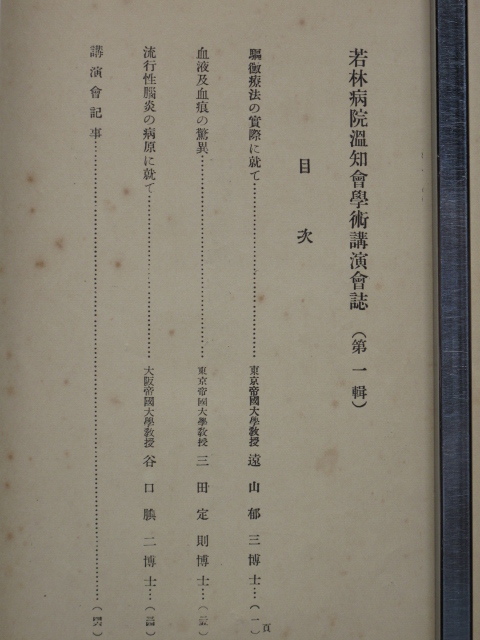 若林病院溫知會學術講演會誌 (第一輯)
目次
驅黴療法の實際に就て 東京帝國大學敎授 遠山郁三博士 (一) 頁
血液及血痕の驚異 東京帝國大學敎授 三田定則博士
流行性腦炎の病原に就て 大阪帝國大學敎授 谷口腆二博士
講演會記事